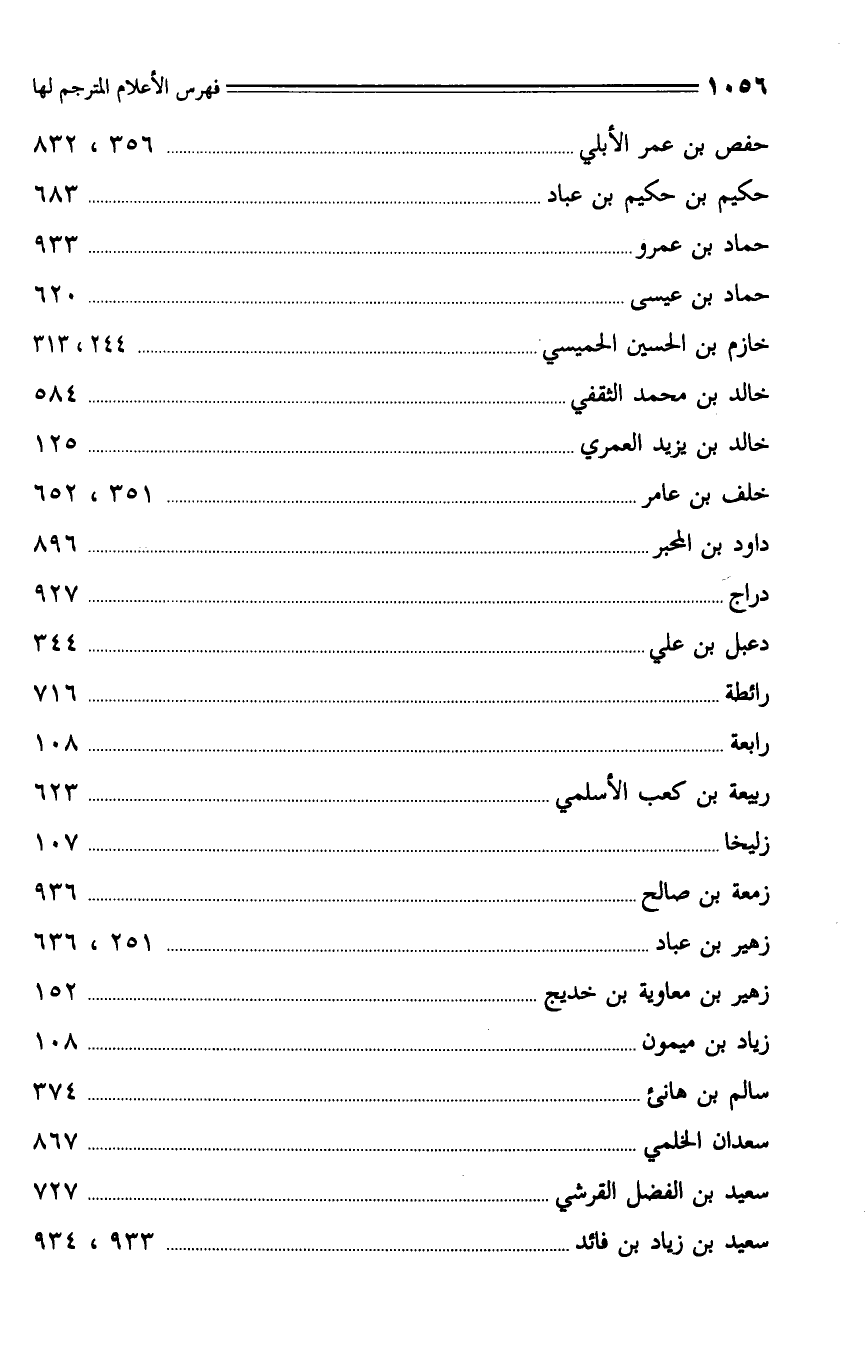 ١٠٥٦ فهرس الأعلام المترجم لها
حفص بن عمر الأبلي ........ ٣٥٦ ، ٨٣٢
حكيم بن حكيم بن عباد ........ ٦٨٣
حماد بن عمرو ........ ٩٣٣
حماد بن عيسى ........ ٦٢٠
خازم بن الحسين الحميسي ........ ٢٤٤ ، ٣١٣
خالد بن محمد الثقفي ........ ٥٨٤
خالد بن يزيد العمري ........ ١٢٥
خلف بن عامر ........ ٣٥١ ، ٦٥٢
داود بن المحبر ........ ٨٩٦
دراج ........ ٩٢٧
دعبل بن علي ........ ٣٤٤
رائطة ........ ٧١٦
رابعة ........ ١٠٨
ربيعة بن كعب الأسلمي ........ ٦٢٣
زليخا ........ ١٠٧
زمعة بن صالح ........ ٩٣٦
زهير بن عباد ........ ٢٥١ ، ٦٣٦
زهير بن معاوية بن خديج ........ ١٥٢
زياد بن ميمون ........ ١٠٨
سالم بن هانئ ........ ٣٧٤
سعدان الخلمي ........ ٨٦٧
سعيد بن الفضل القرشي ........ ٧٢٧
سعيد بن زياد بن فائد ........ ٩٣٣ ، ٩٣٤